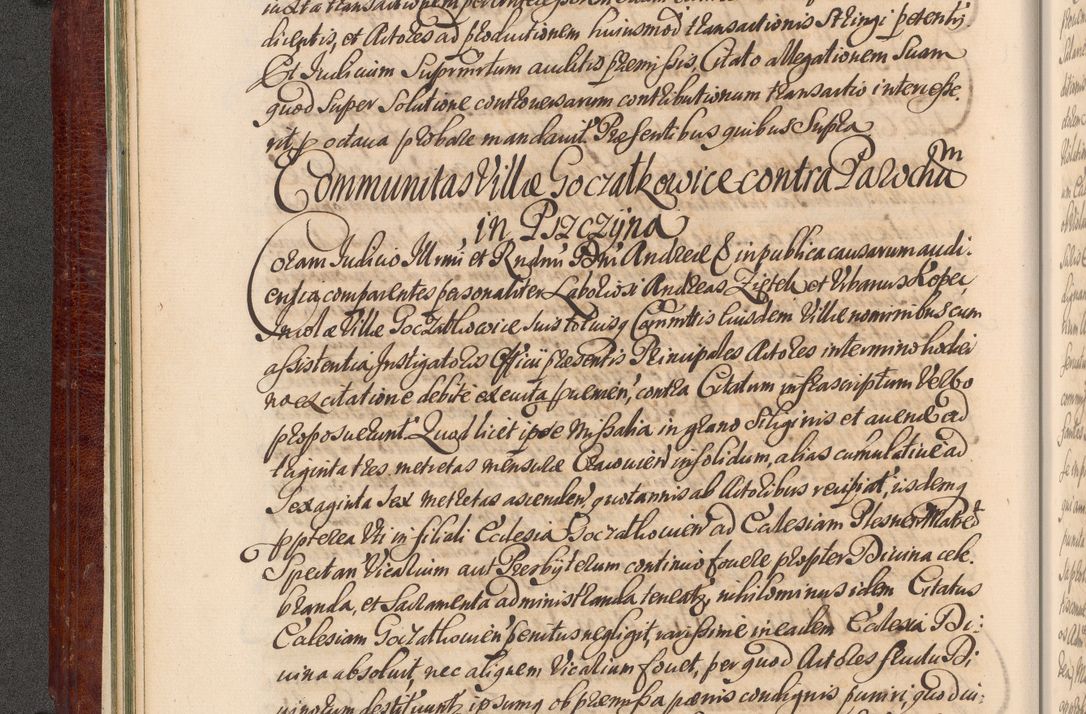 iuxta transactionem
dicentis, et Actores ad productionem huiusmod transactionis Stringi petentis
Et Iudicium Supremotum auditis præmissis, Citato allegationem Suam
quod Super Solutione controversarum contributionum transactio interesse:
rit p octava probare mandavit. Præsentibus quibus Supra
Communitas Villæ Goczalkowice contra Parochũ
in Pszczyna
Coram Iudicio Illrmi et Rndmi Dni Andreæ & in publica causarum audi:
entia, comparentes personaliter Laboriosi Andreas Zietek et Urbanus Kopeć,
Incolæ Villæ Goczalkowice Suis totiusq Communitis eiusdem Villæ nominibus cum
assistentia Instigatoris Officii præsentis Principales Actores in termino hodier
no ex citatione debite executa provenien, contra Citatum infrascriptum Verbo
proposuerunt. Quod licet ipse Missalia in grano Siliginis et avenæ ad
triginta tres metretas mensuræ Cracovien in solidum, alias cumulative ad
Sexaginta Sex metretas ascenden, quotannis ab Actoribus recipiat, iisdemq
ppterea Uti in filiali Ecclesia Goczalkovien ad Ecclesiam Plesnen Matrem
Spectan Vicarium aut Presbyterum continuo fovere propter Divina cele:
branda, et Sacramenta administranda teneatr, nihilominus idem Citatus
Ecclesiam Goczalkovien penitus negligit, rarissime in eadem Ecclesia Di:
vina absolvit, nec aliquem Vicarium fovet, per quod Actores fructu Di
vinorum destituuntr, ipsumq ob præmissa pænis condignis puniri, quod in: